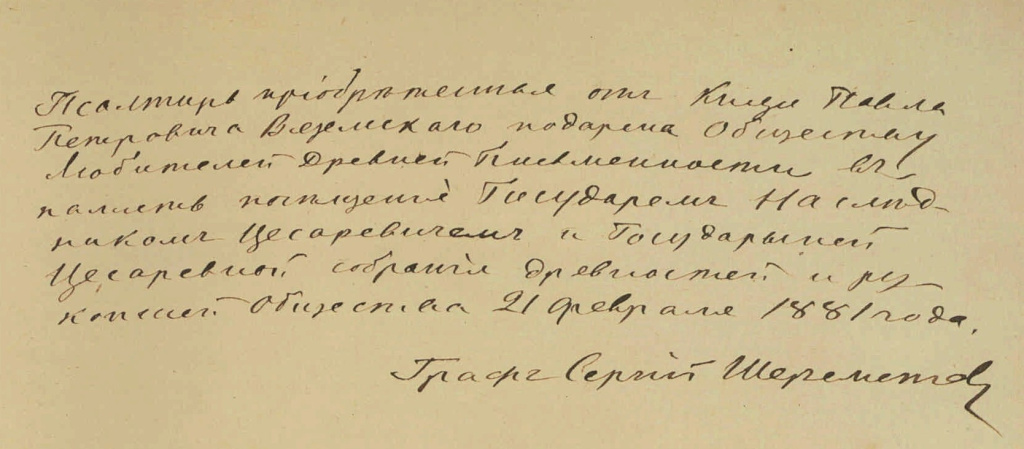 Псалтирь пріобрѣтенная отъ Князя Павла
Петровича Вяземскаго подарена Обществу
Любителей Древней Письменности въ
память посѣщенія Государемъ Наслѣд-
никомъ Цесаревичемъ и Государыней
Цесаревной собранія древностей и ру-
кописей Общества 21 февраля 1881 года.
Графъ Сергій Шереметевъ